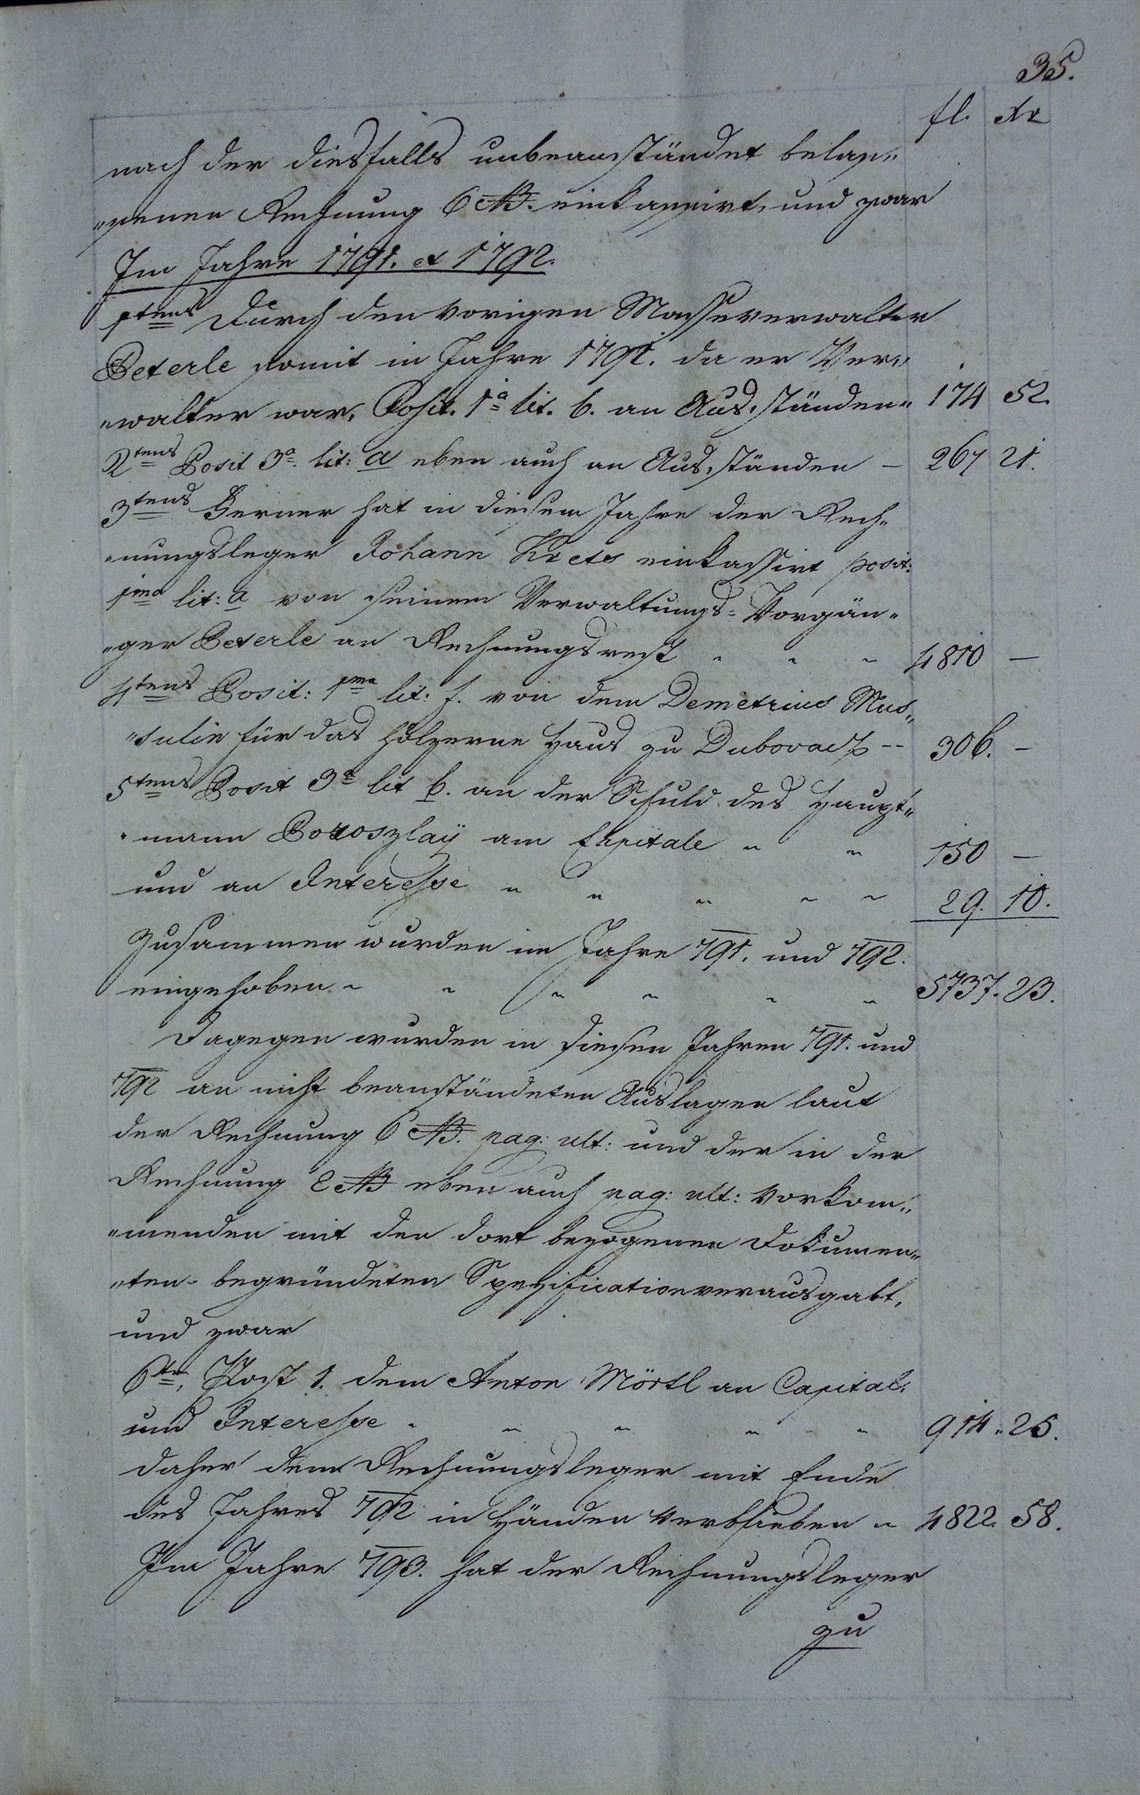 35.
fl. xr
nach der diesfalls unbeanständet belas„
„senen Rechnung 6 AB. einkassirt, und zwar
Im Jahre 1791. et 1792.
1tens Durch den vorigen Masseverwalter
Peterle somit in Jahre 1791. da er Ver„
„walter war, Posit. 1a lit. b. an Aus„ständen „ 174 52.
2tens Posit 3a. lit: a eben auch an Aus„ständen – 267 21.
3tens Ferner hat in diesem Jahre der Rech„
„nungsleger Johann Krets einkassirt posit:
1ma lit: a von seinem Verwaltungs-Vorgän„
„ger Peterle an Rechnungsrest „ „ „ 4810 –
4tens Posit: 1ma lit: f. von dem Demetrius Mus„
„sulin für das hölzerne Haus zu Dubovacz -- 306. –
5tens Posit 3a lit b. an der Schuld des Haupt„
„mann Boroszlaÿ am Capitale „ „ 150 –
und an Interesse „ „ „ „ „ 29. 10.
Zusammen wurden im Jahre 791. und 792.
eingehoben „ „ „ „ „ „ 5737. 23.
Dagegen wurden in diesen Jahren 791. und
792 an nicht beanständeten Auslagen laut
der Rechnung 6 AB. pag: ult: und der in der
Rechnung 2 AB eben auch pag: ult: vorkom„
„menden mit den dort bezogenen Dokumen„
„ten begründeten Spezification verausgabt,
und zwar
6te, Post 1. dem Anton Mörtl an Capital
und Interesse „ „ „ „ „ „ 914 „ 25.
daher dem Rechnungsleger mit Ende
des Jahres 792 in Händen verblieben „ 4822. 58.
Im Jahre 793. hat der Rechnungsleger
zu